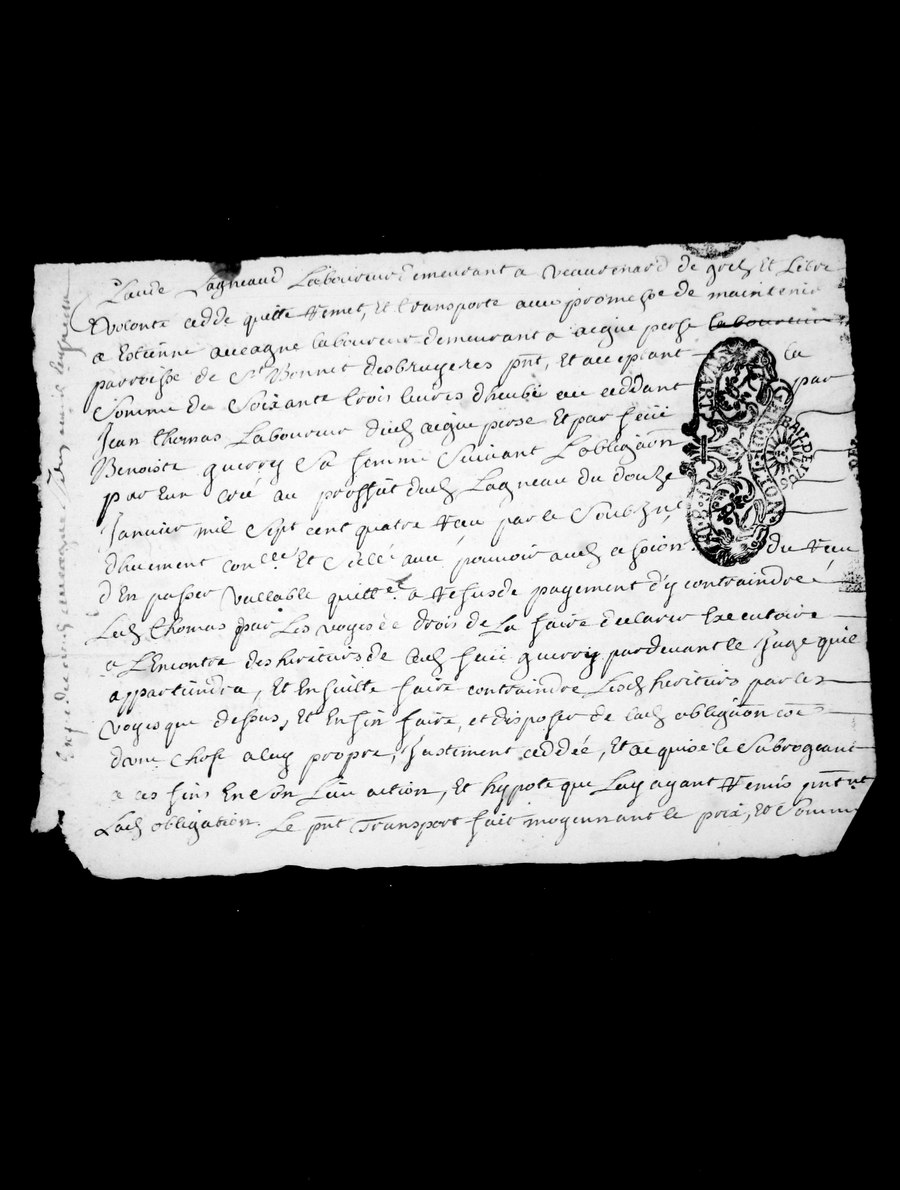 Claude Lagneaud Laboureur demeurant a Veaurenard de gréz et Libre
Volonte cedde quitte remet, et transporte avec promesse de maintenir
a Estienne aucagne laboureur demeurant a aigue perse laboureur
parroisse de St Bonnet des bruyeres pnt, et acceptant la
Somme de Soixante trois livres dheube au ceddant par
Jean thomas Laboureur dud aigue perse et par feüe
Benoiste guerry Sa femme Suivant Lobliga͠on
par Eux créé au proffit dud Lagneau du douze
Janvier mil Sept cent quatre reçu par le Soubz.né
dhuement con.lée Et Cellé avec pouvoir aud du reçu
dEn passer vallable quitt.ce a refus de payement dy contraindre
Led thomas par Les voyes de drois de La faire declarer Executoire
a LEncontre des heritiers de lad feüe guerry pardevant le Juge quil
appartiendra, Et Ensuitte faire contraindre Lesd heritiers par les
voyes que dessus, et Enfin faire, et disposer de lad obliga͠on coe
dune chose a luy propre, Justement ceddée, Et acquise le Subrogeant
a ces fins En Son Lieu action, Et hypoteque Luy ayant remis pntnt
Lad obligation. Le pnt Transport fait moyennant le prix, et Somme